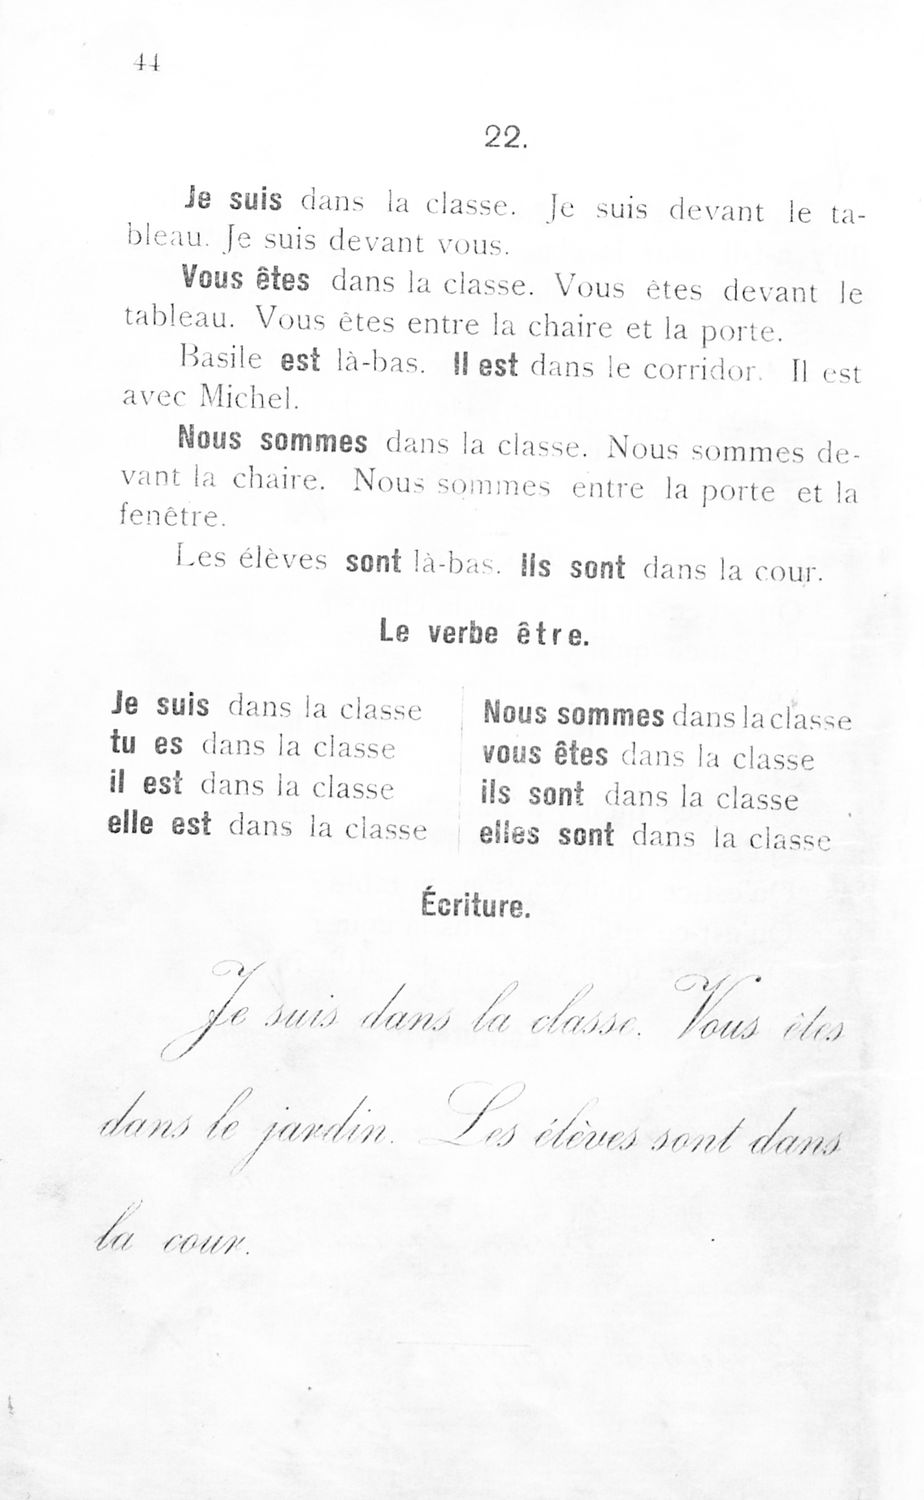 44
22.
Je suis dans la classe. Je suis devant le ta-
bleau. Je suis devant vous.
Vous êtes dans la classe. Vous êtes devant le
tableau. Vous êtes entre la chaire et la porte.
Basile est là-bas. Il est dans le corridor. Il est
avec Michel.
Nous sommes dans la classe. Nous sommes de-
vant la chaire. Nous sommes entre la porte et la
fenêtre.
Les élèves sont là-bas. Ils sont dans la cour.
Le verbe être.
Je suis dans la classe
tu es dans la classe
il est dans la classe
elle est dans la classe
Nous sommes dans la classe
vous êtes dans la classe
ils sont dans la classe
elles sont dans la classe
Écriture.
Je suis dans la classe. Vous êtes
dans le jardin. Les élèves sont dans
la cour.